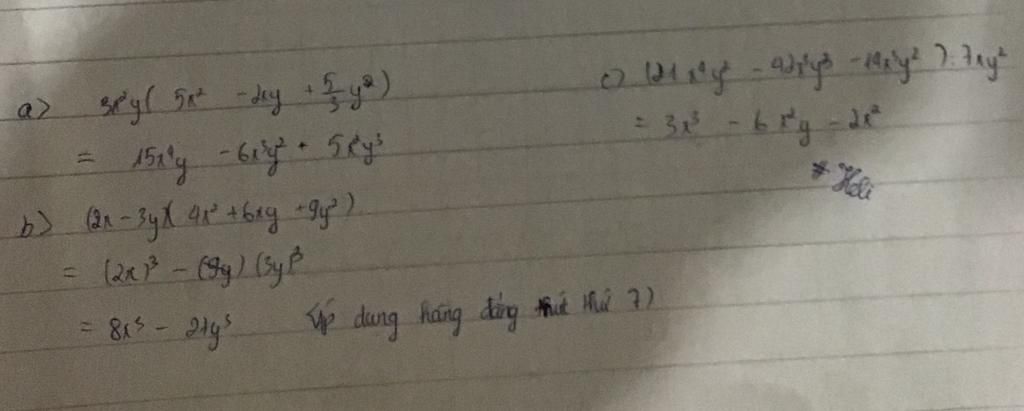 a) 3x²y( 5x² - 2xy + 5/3 y²)
= 15x⁴y - 6x³y² + 5x²y³
b) (2x - 3y)( 4x² + 6xy + 9y²)
= (2x)³ - (3y)³
= 8x³ - 27y³ (Áp dụng hằng đẳng thức thứ 7)
c) (21x⁴y² - 42x³y³ - 14x³y² ) : 7xy²
= 3x³ - 6x²y - 2x²